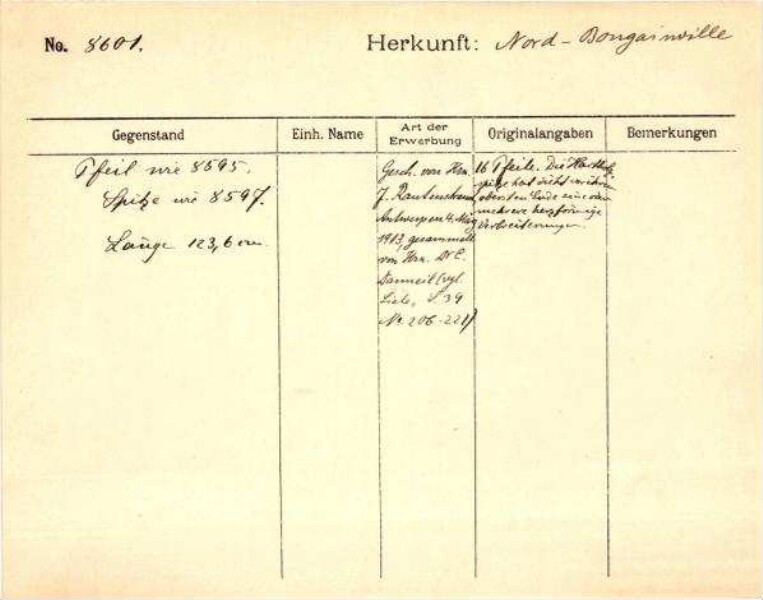 No. 8601.
Herkunft: Nord-Bougainville
Gegenstand
Einh. Name
Art der Erwerbung
Originalangaben
Bemerkungen
Pfeil wie 8595.
Spitze wie 8597.
Länge 123,6 cm.
Gesch. von Hrn.
J. Rautenstrauch
Antwerpen 4. März
1913, gesammelt
von Hrn. Dr C.
Danneil (vgl.
Liste, S. 39
Nr. 206-221)
16 Pfeile. Die Hartholz
spitze hat dicht
obersten Ende eine oder
mehrere herzförmige
Verbreiterungen.